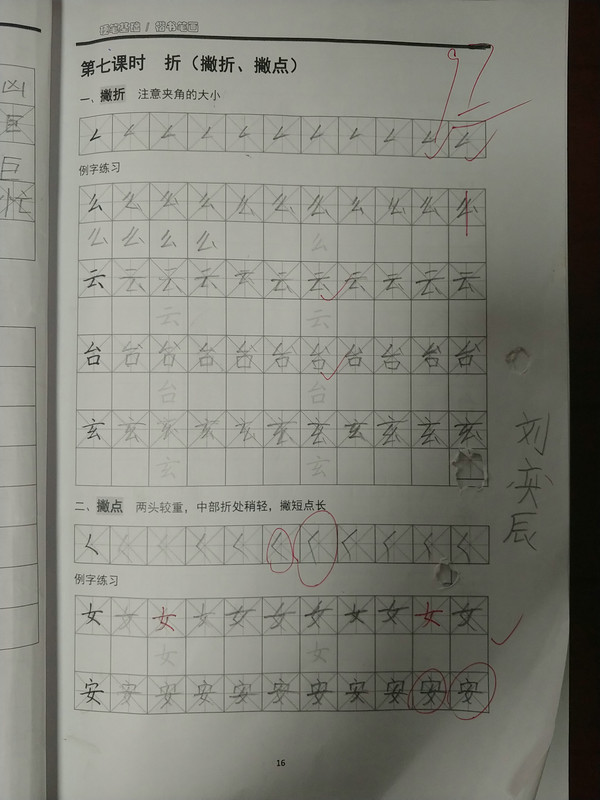 硬笔基础 / 楷书笔画
第七课时 折（撇折、撇点）
一、撇折 注意夹角的大小
例字练习
么 么 么 么 么 么 么 么 么 么 么
么 么 么 么 么
云 云 云 云 云 云 云 云 云 云 云
云 云
台 台 台 台 台 台 台 台 台 台 台
台 台
玄 玄 玄 玄 玄 玄 玄 玄 玄 玄 玄
玄 玄
二、撇点 两头较重，中部折处稍轻，撇短点长
例字练习
女 女 女 女 女 女 女 女 女 女 女
女 女
安 安 安 安 安 安 安 安 安 安 安
16
凶
巨
巨
忙
刘奕辰